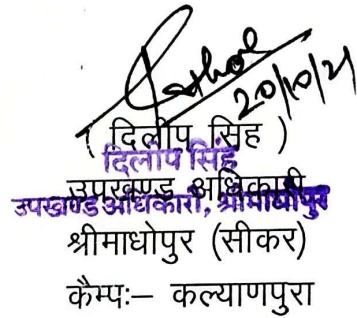 20/10/21
( दिलीप सिंह )
दिलीप सिंह
उपखण्ड अधिकारी
उपखण्ड अधिकारी, श्रीमाधोपुर
श्रीमाधोपुर (सीकर)
कैम्पः– कल्याणपुरा